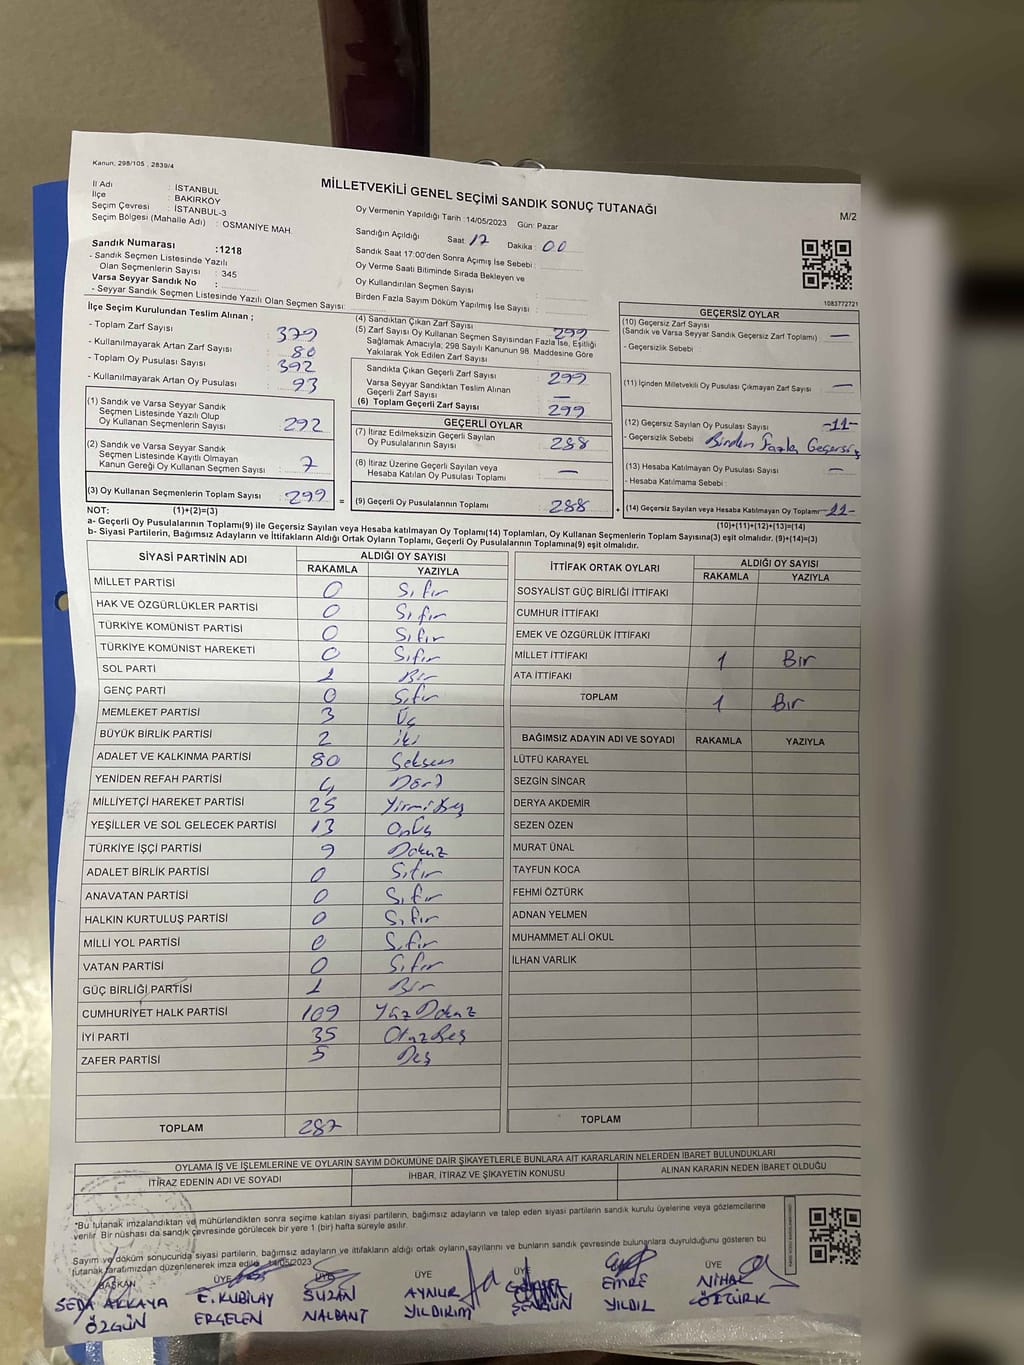 Kanun; 298/105 , 2839/4
MİLLETVEKİLİ GENEL SEÇİMİ SANDIK SONUÇ TUTANAĞI
M/2
İl Adı : İSTANBUL
İlçe : BAKIRKÖY
Seçim Çevresi : İSTANBUL-3
Seçim Bölgesi (Mahalle Adı) : OSMANİYE MAH.
Oy Vermenin Yapıldığı Tarih :14/05/2023 Gün: Pazar
Sandığın Açıldığı Saat 17 Dakika : 00
Sandık Saat 17:00'den Sonra Açımış İse Sebebi :
Oy Verme Saati Bitiminde Sırada Bekleyen ve
Oy Kullandırılan Seçmen Sayısı :
Birden Fazla Sayım Döküm Yapılmış İse Sayısı :
Sandık Numarası :1218
- Sandık Seçmen Listesinde Yazılı
Olan Seçmenlerin Sayısı : 345
Varsa Seyyar Sandık No :
- Seyyar Sandık Seçmen Listesinde Yazılı Olan Seçmen Sayısı:
1083772721
İlçe Seçim Kurulundan Teslim Alınan ;
- Toplam Zarf Sayısı : 379
- Kullanılmayarak Artan Zarf Sayısı : 80
- Toplam Oy Pusulası Sayısı : 392
- Kullanılmayarak Artan Oy Pusulası : 93
(1) Sandık ve Varsa Seyyar Sandık
Seçmen Listesinde Yazılı Olup
Oy Kullanan Seçmenlerin Sayısı : 292
(2) Sandık ve Varsa Seyyar Sandık
Seçmen Listesinde Kayıtlı Olmayan
Kanun Gereği Oy Kullanan Seçmen Sayısı : 7
(3) Oy Kullanan Seçmenlerin Toplam Sayısı : 299 =
(4) Sandıktan Çıkan Zarf Sayısı : 299
(5) Zarf Sayısı Oy Kullanan Seçmen Sayısından Fazla İse, Eşitliği
Sağlamak Amacıyla; 298 Sayılı Kanunun 98. Maddesine Göre
Yakılarak Yok Edilen Zarf Sayısı :
Sandıkta Çıkan Geçerli Zarf Sayısı : 299
Varsa Seyyar Sandıktan Teslim Alınan
Geçerli Zarf Sayısı : —
(6) Toplam Geçerli Zarf Sayısı : 299
GEÇERLİ OYLAR
(7) İtiraz Edilmeksizin Geçerli Sayılan
Oy Pusulalarının Sayısı : 288
(8) İtiraz Üzerine Geçerli Sayılan veya
Hesaba Katılan Oy Pusulası Toplamı : —
(9) Geçerli Oy Pusulalarının Toplamı : 288 +
GEÇERSİZ OYLAR
(10) Geçersiz Zarf Sayısı
(Sandık ve Varsa Seyyar Sandık Geçersiz Zarf Toplamı) : —
- Geçersizlik Sebebi :
(11) İçinden Milletvekili Oy Pusulası Çıkmayan Zarf Sayısı : —
(12) Geçersiz Sayılan Oy Pusulası Sayısı : -11-
- Geçersizlik Sebebi : Birden Fazla Geçersiz
(13) Hesaba Katılmayan Oy Pusulası Sayısı : —
- Hesaba Katılmama Sebebi :
(14) Geçersiz Sayılan veya Hesaba Katılmayan Oy Toplamı: -11-
NOT: (1)+(2)=(3)
(10)+(11)+(12)+(13)=(14)
a- Geçerli Oy Pusulalarının Toplamı(9) ile Geçersiz Sayılan veya Hesaba katılmayan Oy Toplamı(14) Toplamları, Oy Kullanan Seçmenlerin Toplam Sayısına(3) eşit olmalıdır. (9)+(14)=(3)
b- Siyasi Partilerin, Bağımsız Adayların ve İttifakların Aldığı Ortak Oyların Toplamı, Geçerli Oy Pusulalarının Toplamına(9) eşit olmalıdır.
SİYASİ PARTİNİN ADI ALDIĞI OY SAYISI
RAKAMLA YAZIYLA
MİLLET PARTİSİ 0 Sıfır
HAK VE ÖZGÜRLÜKLER PARTİSİ 0 Sıfır
TÜRKİYE KOMÜNİST PARTİSİ 0 Sıfır
TÜRKİYE KOMÜNİST HAREKETİ 0 Sıfır
SOL PARTİ 1 Bir
GENÇ PARTİ 0 Sıfır
MEMLEKET PARTİSİ 3 Üç
BÜYÜK BİRLİK PARTİSİ 2 iki
ADALET VE KALKINMA PARTİSİ 80 Seksen
YENİDEN REFAH PARTİSİ 4 Dört
MİLLİYETÇİ HAREKET PARTİSİ 25 Yirmibeş
YEŞİLLER VE SOL GELECEK PARTİSİ 13 Onüç
TÜRKİYE İŞÇİ PARTİSİ 9 Dokuz
ADALET BİRLİK PARTİSİ 0 Sıfır
ANAVATAN PARTİSİ 0 Sıfır
HALKIN KURTULUŞ PARTİSİ 0 Sıfır
MİLLİ YOL PARTİSİ 0 Sıfır
VATAN PARTİSİ 0 Sıfır
GÜÇ BİRLİĞİ PARTİSİ 1 Bir
CUMHURİYET HALK PARTİSİ 109 Yüz Dokuz
İYİ PARTİ 35 Otuz Beş
ZAFER PARTİSİ 5 Beş
TOPLAM 287
İTTİFAK ORTAK OYLARI ALDIĞI OY SAYISI
RAKAMLA YAZIYLA
SOSYALİST GÜÇ BİRLİĞİ İTTİFAKI
CUMHUR İTTİFAKI
EMEK VE ÖZGÜRLÜK İTTİFAKI
MİLLET İTTİFAKI 1 Bir
ATA İTTİFAKI
TOPLAM 1 Bir
BAĞIMSIZ ADAYIN ADI VE SOYADI RAKAMLA YAZIYLA
LÜTFÜ KARAYEL
SEZGİN SİNCAR
DERYA AKDEMİR
SEZEN ÖZEN
MURAT ÜNAL
TAYFUN KOCA
FEHMİ ÖZTÜRK
ADNAN YELMEN
MUHAMMET ALİ OKUL
İLHAN VARLIK
TOPLAM
OYLAMA İŞ VE İŞLEMLERİNE VE OYLARIN SAYIM DÖKÜMÜNE DAİR ŞİKAYETLERLE BUNLARA AİT KARARLARIN NELERDEN İBARET BULUNDUKLARI
İTİRAZ EDENİN ADI VE SOYADI İHBAR, İTİRAZ VE ŞİKAYETİN KONUSU ALINAN KARARIN NEDEN İBARET OLDUĞU
*Bu tutanak imzalandıktan ve mühürlendikten sonra seçime katılan siyasi partilerin, bağımsız adayların ve talep eden siyasi partilerin sandık kurulu üyelerine veya gözlemcilerine
verilir. Bir nüshası da sandık çevresinde görülecek bir yere 1 (bir) hafta süreyle asılır.
Sayım ve döküm sonucunda siyasi partilerin, bağımsız adayların ve ittifakların aldığı ortak oyların sayılarını ve bunların sandık çevresinde bulunanlara duyrulduğunu gösteren bu
tutanak tarafımızdan düzenlenerek imza edildi. 14/05/2023
BAŞKAN ÜYE ÜYE ÜYE ÜYE ÜYE ÜYE
SEDA AKKAYA E. KUBİLAY SUZAN AYNUR EMRE NİHAL
ÖZGÜN ERGELEN NALBANT YILDIRIM ŞENGÜN YILDIL ÖZTÜRK